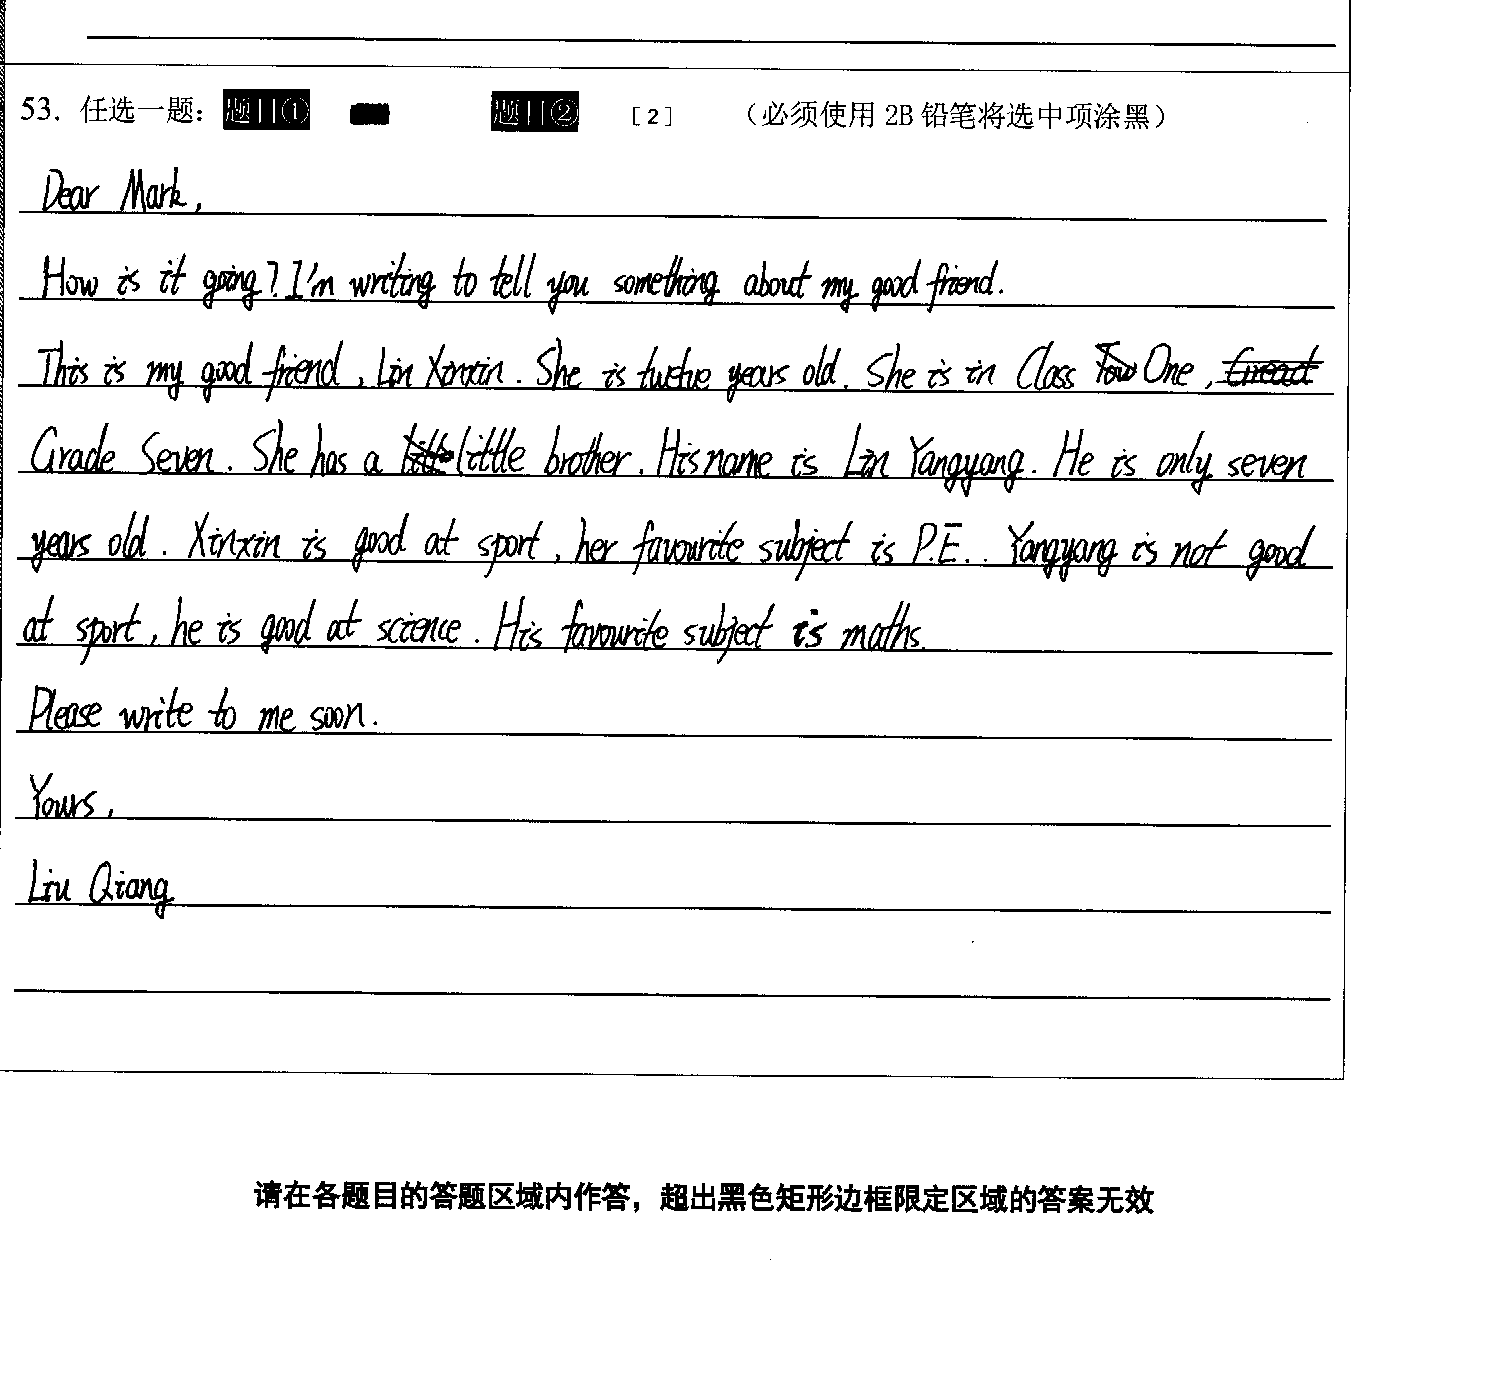 53. 任选一题： 题目① 题目② [2] （必须使用 2B 铅笔将选中项涂黑）
Dear Mark,
How is it going? I'm writing to tell you something about my good friend.
This is my good friend, Lin Xinxin. She is twelve years old. She is in Class One,
Grade Seven. She has a little brother. His name is Lin Yangyang. He is only seven
years old. Xinxin is good at sport, her favourite subject is P.E.. Yangyang is not good
at sport, he is good at science. His favourite subject is maths.
Please write to me soon.
Yours,
Liu Qiang
请在各题目的答题区域内作答，超出黑色矩形边框限定区域的答案无效